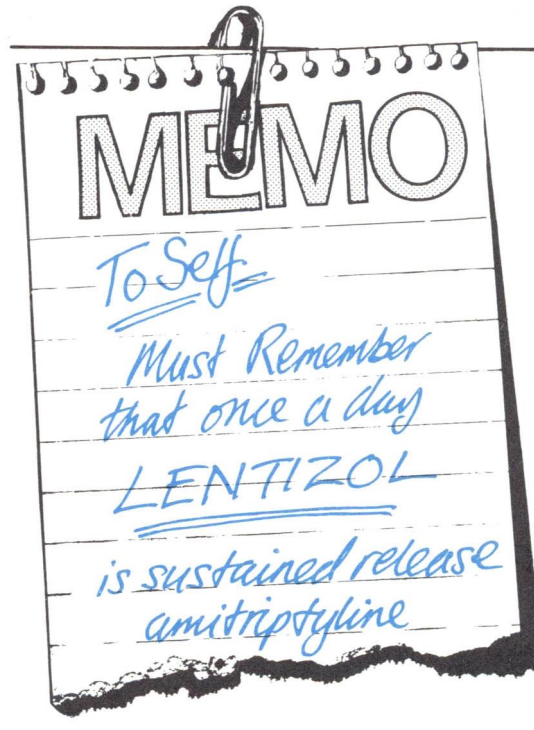 MEMO
To Self
Must Remember
that once a day
LENTIZOL
is sustained release
amitriptyline